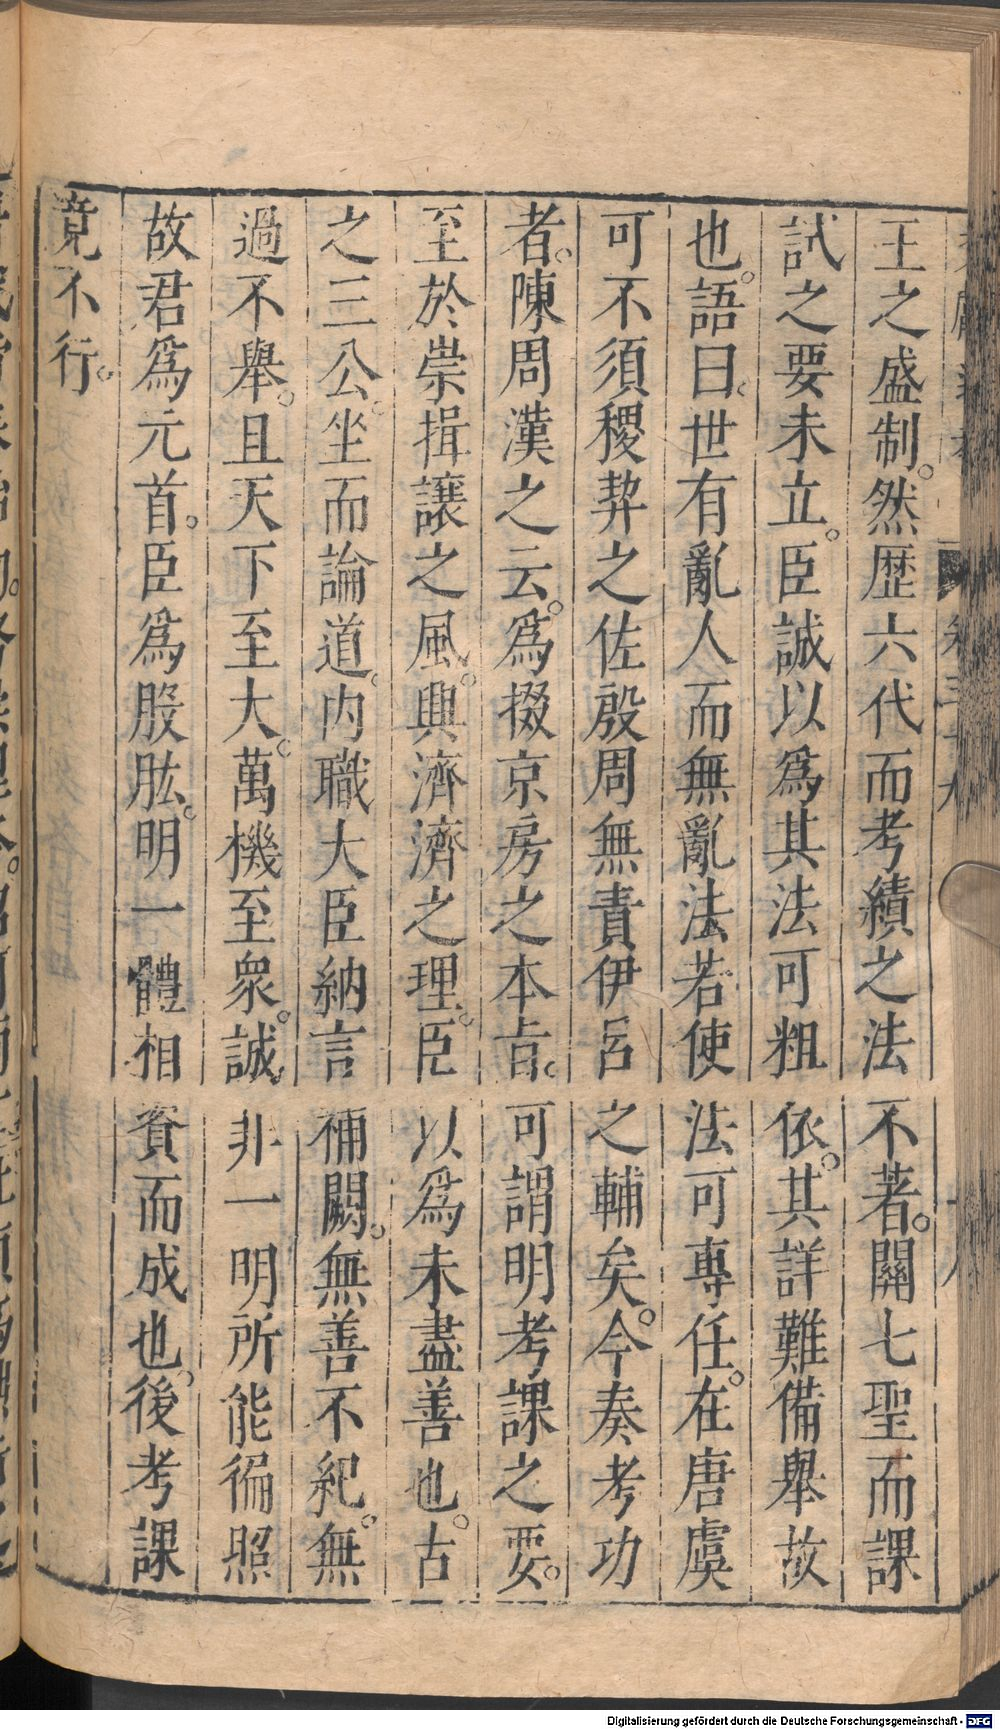 王之盛制。然歴六代而考績之法不著。關七聖而課
試之要未立。臣誠以爲其法可粗依。其詳難備舉故
也。語曰。世有亂人而無亂法若使法可專任。在唐虞
可不須稷契之佐殷周無責伊呂之輔矣。今奏考功
者。陳周漢之云。爲掇京房之本旨。可謂明考課之要。
至於崇揖讓之風。興濟濟之理。臣以爲未盡善也。古
之三公。坐而論道。内職大臣納言補闕。無善不紀。無
過不舉。且天下至大。萬機至衆。誠非一明所能徧照
故君爲元首。臣爲股肱。明一體相資而成也。後考課
竟不行。
Digitalisierung gefördert durch die Deutsche Forschungsgemeinschaft - DFG